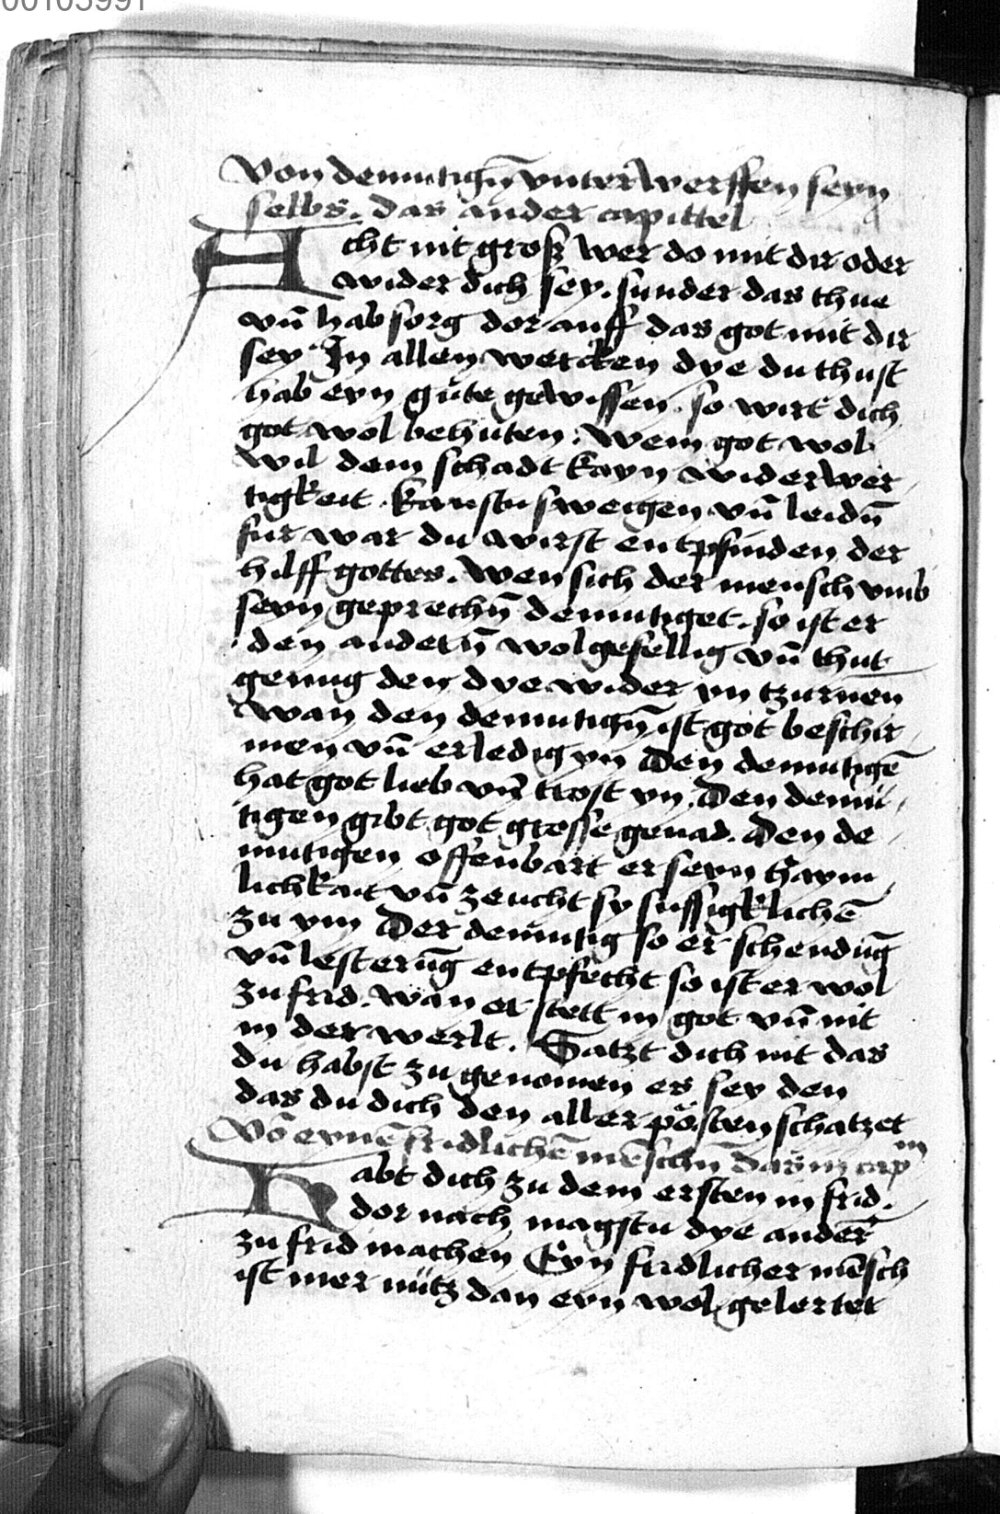 00103991
Von demutigñ vnterwerffen seyn
selbs. das ander capittel
Acht nit groß wer do mit dir oder
wider dich sey. sunder das thue
vñ hab sorg dor auff das got mit dir
sey In allen wercken dye du thust
hab eyn gute gewissen. so wirt dich
got wol behuten. Wem got wol
wil dem schadt kayn widerwer
tigkeit. kanstu sweigen vñ leidñ
fur war du wirst entpfinden der
hilff gottes. Wen sich der mensch vmb
seyn geprechñ demutiget. so ist er
den anderñ wolgefellig vñ thut
genug den dye wider yn tzurnen
wan den demutigñ ist got beschir
men vñ erledig yn Den demutigē
hat got lieb vñ trost yn. Den demu
tigen gibt got grosse genad. Den de
mutigen offenbart er seyn haym
lichkait vñ zeucht sy sussigklichē
zu ym Der demutig so er schendūg
vñ lesterūg entpfecht so ist er wol
zu frid. wan er stett in got vñ nit
in der werlt. Satzt dich nit das
du habst zu genomen es sey den
das du dich den aller pösten schatzet
Vō eynē fridlichē mēschñ das iij capᵐ
Habt dich zu dem ersten in frid.
dor nach magstu dye ander
zu frid machen Eyn fridlicher mēsch
ist mer nutz dan eyn wol gelertet